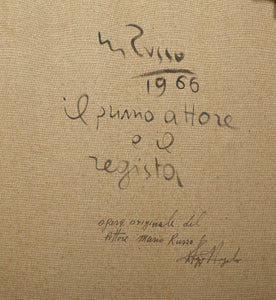 M Russo
1966
il primo attore
e il
regista
opera originale del
Pittore Mario Russo